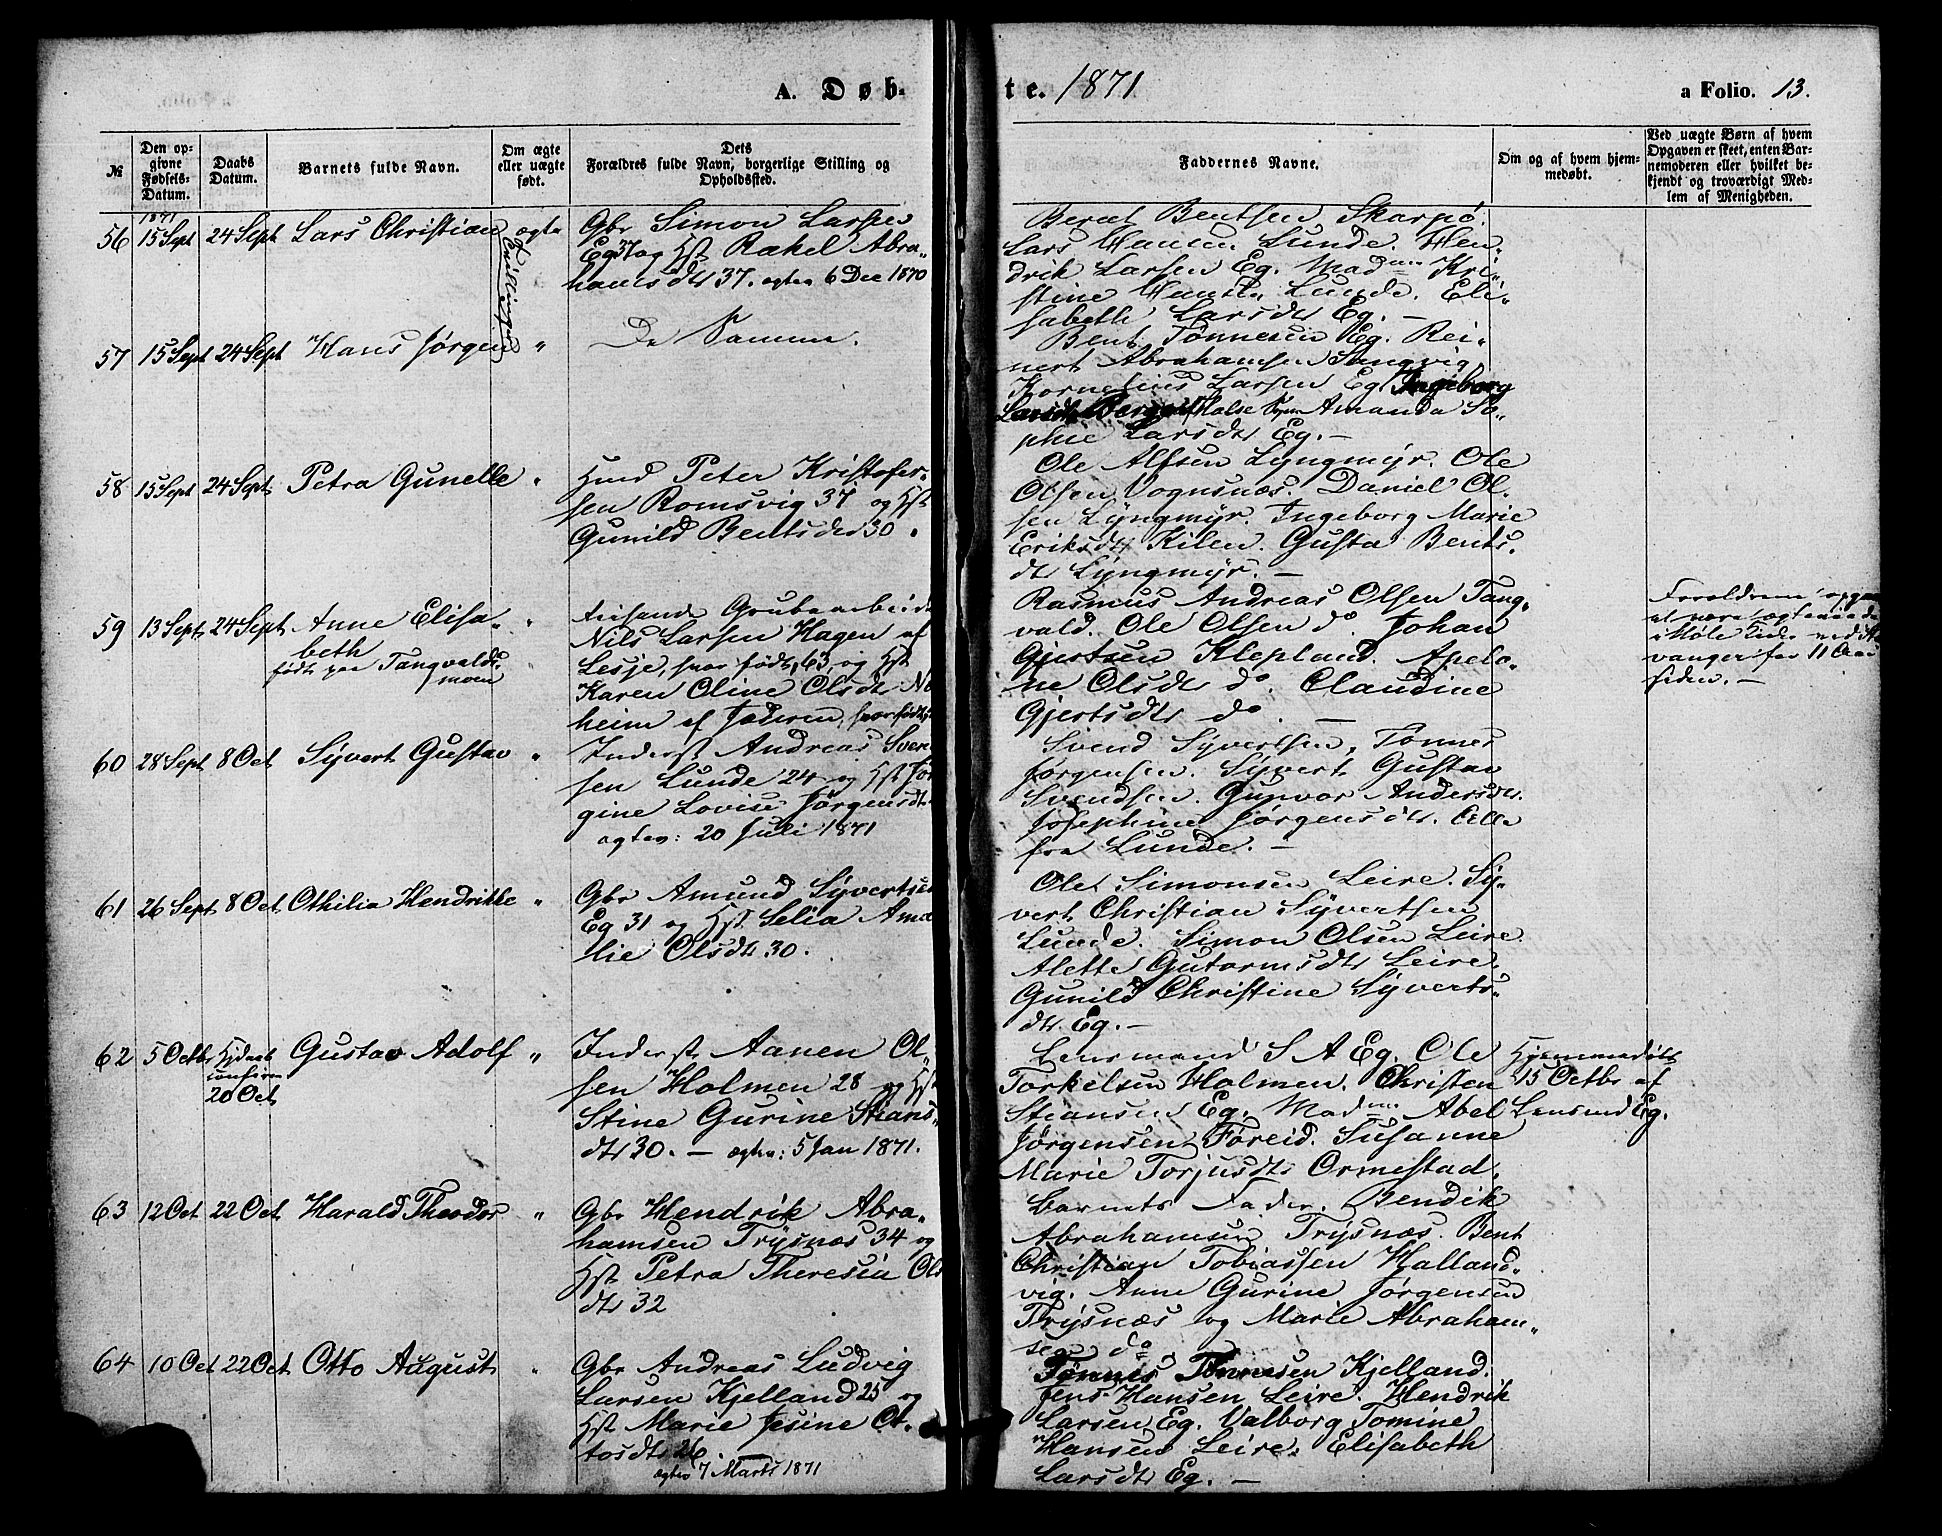 A. Døb-
te. 1871
a Folio. 13.
№
Den op-
givne
Fødsels-
Datum.
Daabs
Datum.
Barnets fulde Navn.
Om ægte
eller uægte
født.
Dets
Forældres fulde Navn, borgerlige Stilling og
Opholdssted.
Faddernes Navne.
Om og af hvem hjem-
medøbt.
Ved uægte Børn af hvem
Opgaven er skeet, enten Bar-
nemoderen eller hvilket be-
kjendt og troværdigt Med-
lem af Menigheden.
1871
56 15 Sept 24 Sept Lars Christian ægte
Tvillinger
Gbr Simon Larsen
Eg 37 og Hst Rakel Abra-
hamsdtr 37. ægtev 6 Dec 1870
Berent Bentsen Skarpø
Lars Hansen Lunde. Hen-
drik Larsen Eg. Mad Kri-
stine Hansen Lunde. Eli-
sabeth Larsdtr Eg. —
57 15 Sept 24 Sept Hans Jørgen "
De Samme.
Bent Tønnesen Eg. Rei-
nert Abrahamsen Sangvig
Kornelius Larsen Eg. Ingeborg
Larsdtr Amanda So-
phie Larsdtr Eg. —
58 15 Sept 24 Sept Petra Gunelle "
Hmd Peter Kristofer-
sen Romsvig 37 og Hst
Gunild Bentsdtr 30.
Ole Alfsen Lyngmyr. Ole
Olsen Vognsnæs. Daniel Ol-
sen Lyngmyr. Ingeborg Marie
Eriksdtr Kilen. Gusta Bents-
dtr Lyngmyr. —
59 13 Sept 24 Sept Anne Elisa- "
beth
født paa Tangvalds
moen
Reisende Grubearbeid
Nils Larsen Hagen af
Lesje, hvor født, 63, og Hst
Karen Oline Olsdtr
heim af Jæderen, hvor født,
Rasmus Andreas Olsen Tang-
vald. Ole Olsen do. Johan
Gjertsen Klepland. Apelo-
ne Olsdtr do. Claudine
Gjertsdtr do. —
Forældrene opga
at være ægteviede
i Høle Kirke ved St
vanger for 11 Aar
siden. —
60 28 Sept 8 Oct Syvert Gustav "
Inderst Andreas Sven
sen Lunde 24 og Hst Jør
gine Lovise Jørgensdtr
ægtev: 20 Juli 1871
Svend Syvertsen, Tønnes
Jørgensen. Syvert Gustav
Svendsen. Gunvor Andersdtr.
Josephine Jørgensdtr. Alle
fra Lunde. —
61 26 Sept 8 Oct. Othilia Hendrikke "
Gbr Amund Syvertsen
Eg 31 og Hst Selia Ama
lie Olsdtr 30.
Ole Simonsen Leire. Sy-
vert Christian Syvertsen
Lunde. Simon Olsen Leire.
Alette Gutormsdtr Leire.
Gunild Christine Syverts-
dtr. Eg. —
62 5 Octbr Hjdaab Gustav Adolf "
confirm
20 Oct
Inderst Aanen Ol-
sen Holmen 28 og Hst
Stine Gurine Stians-
dtr 30. — ægtev: 5 Jan 1871.
Lensmand S A Eg. Ole
Torkelsen Holmen. Christen
Stiansen Eg. Mad Abel
Jørgensen Føreid. Susanne
Marie Torjusdtr Ormestad.
Hjemmedøbt
15 Octbr af
Lensmd Eg.
63 12 Oct 22 Oct. Harald Theodor "
Gbr Hendrik Abra-
hamsen Trysnæs 34 og
Hst Petra Theresia Ols
dtr 32
Barnets Fader. Bendik
Abrahamsen Trysnæs. Bent
Christian Tobiassen Halland-
vig. Anne Gurine Jørgensen
Trysnæs og Marie Abraham-
sen do
64 10 Oct 22 Oct. Otto August "
Gbr Andreas Ludvig
Larsen Kjelland 25 og
Hst Marie Jesine Ot-
tosdtr 26
ægtev 7 Marts 1871
Tønnes Tønnesen Kjelland.
Jens Hansen Leire. Hendrik
Larsen Eg. Valborg Tomine
Hansen Leire. Elisabeth
Larsdtr Eg. —